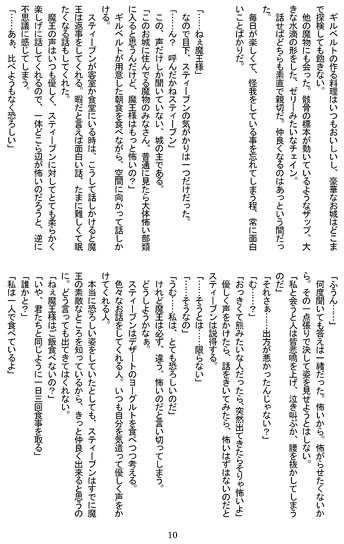 ギルベルトの作る料理はいつもおいしいし、豪華なお城はどこま
で探検しても飽きない。
他の魔物にも会った。骸骨の標本が動いているようなザップ、大
きな水滴の形をした、ゼリーみたいなチェイン。
話せばどちらも素直で親切だ。仲良くなるのはあっという間だっ
た。
毎日が楽しくて、怪我をしている事を忘れてしまう程、常に面白
いことばかりだ。
「……ねぇ魔王様」
なので目下、スティーブンの気がかりは一つだけだった。
「……ん？　呼んだかねスティーブン」
この、声だけしか聞いていない、城の主である。
「このお城に住んでる魔物のみなさん、普通に見たら大体怖い部類
に入ると思うんだけど、魔王様はもっと怖いの？」
ギルベルトが用意した朝食を食べながら、空間に向かって話しか
ける。
スティーブンが客室か食堂にいる時は、こうして話しかけると魔
王は返事をしてくれる。暇だと言えば面白い話、たまに難しくて眠
たくなる話もしてくれた。
魔王の声はいつも優しく、スティーブンに対してとても柔らかく
楽しげに話してくれるので、一体どこら辺が怖いのだろうと、逆に
不思議に感じてしまう。
「……あぁ、比べようもなく恐ろしい」
「ふうん……」
何度聞いても答えは一緒だった。怖いから。怖がらせたくないか
ら。その一点張りで決して姿を見せようとはしない。
「私と会うと人は皆悲鳴を上げ、泣き叫ぶか、腰を抜かしてしまう
のだ」
「それさぁ……出方が悪かったんじゃない？」
「む……？」
「おっきくて熊みたいな人だったら、突然出てきたらそりゃ怖いよ」
優しく声をかけたら、話をきいてみたら、怖いはずはないのだと
スティーブンは説得する。
「……そうとは……限らない」
「……そうなの」
「うむ……私は、とても恐ろしいのだ」
けれど魔王は必ず、違う、怖いのだと言い切ってしまう。
どうしようかなぁ。
スティーブンはデザートのヨーグルトを食べつつ考える。
色々なお話をしてくれる人。いつも自分を気遣って優しく声をか
けてくれる人。
本当に恐ろしい姿をしていたとしても、スティーブンはすでに魔
王の素敵なところを知っているから、きっと仲良く出来ると思うの
に。どう言っても出てきてはくれない。
「ねぇ魔王様はご飯食べないの？」
「いや、君たちと同じように一日三回食事を取る」
「誰かと？」
「私は一人で食べているよ」
10